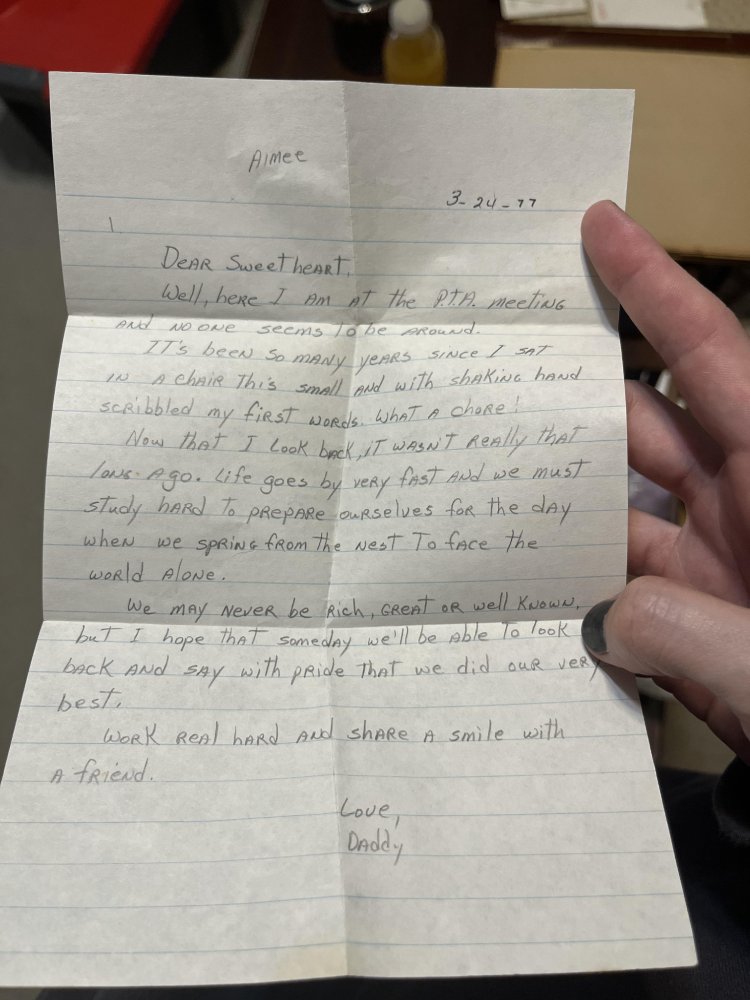 Aimee
3-24-77
Dear Sweetheart,
Well, here I am at the P.T.A. meeting
and no one seems to be around.
IT's been so many years since I sat
in a chair this small and with shaking hand
scribbled my first words. What a chore!
Now that I look back, it wasn't really that
long ago. Life goes by very fast and we must
study hard to prepare ourselves for the day
when we spring from the nest to face the
world alone.
We may never be rich, great or well known,
but I hope that someday we'll be able to look
back and say with pride that we did our very
best.
Work real hard and share a smile with
a friend.
Love,
Daddy